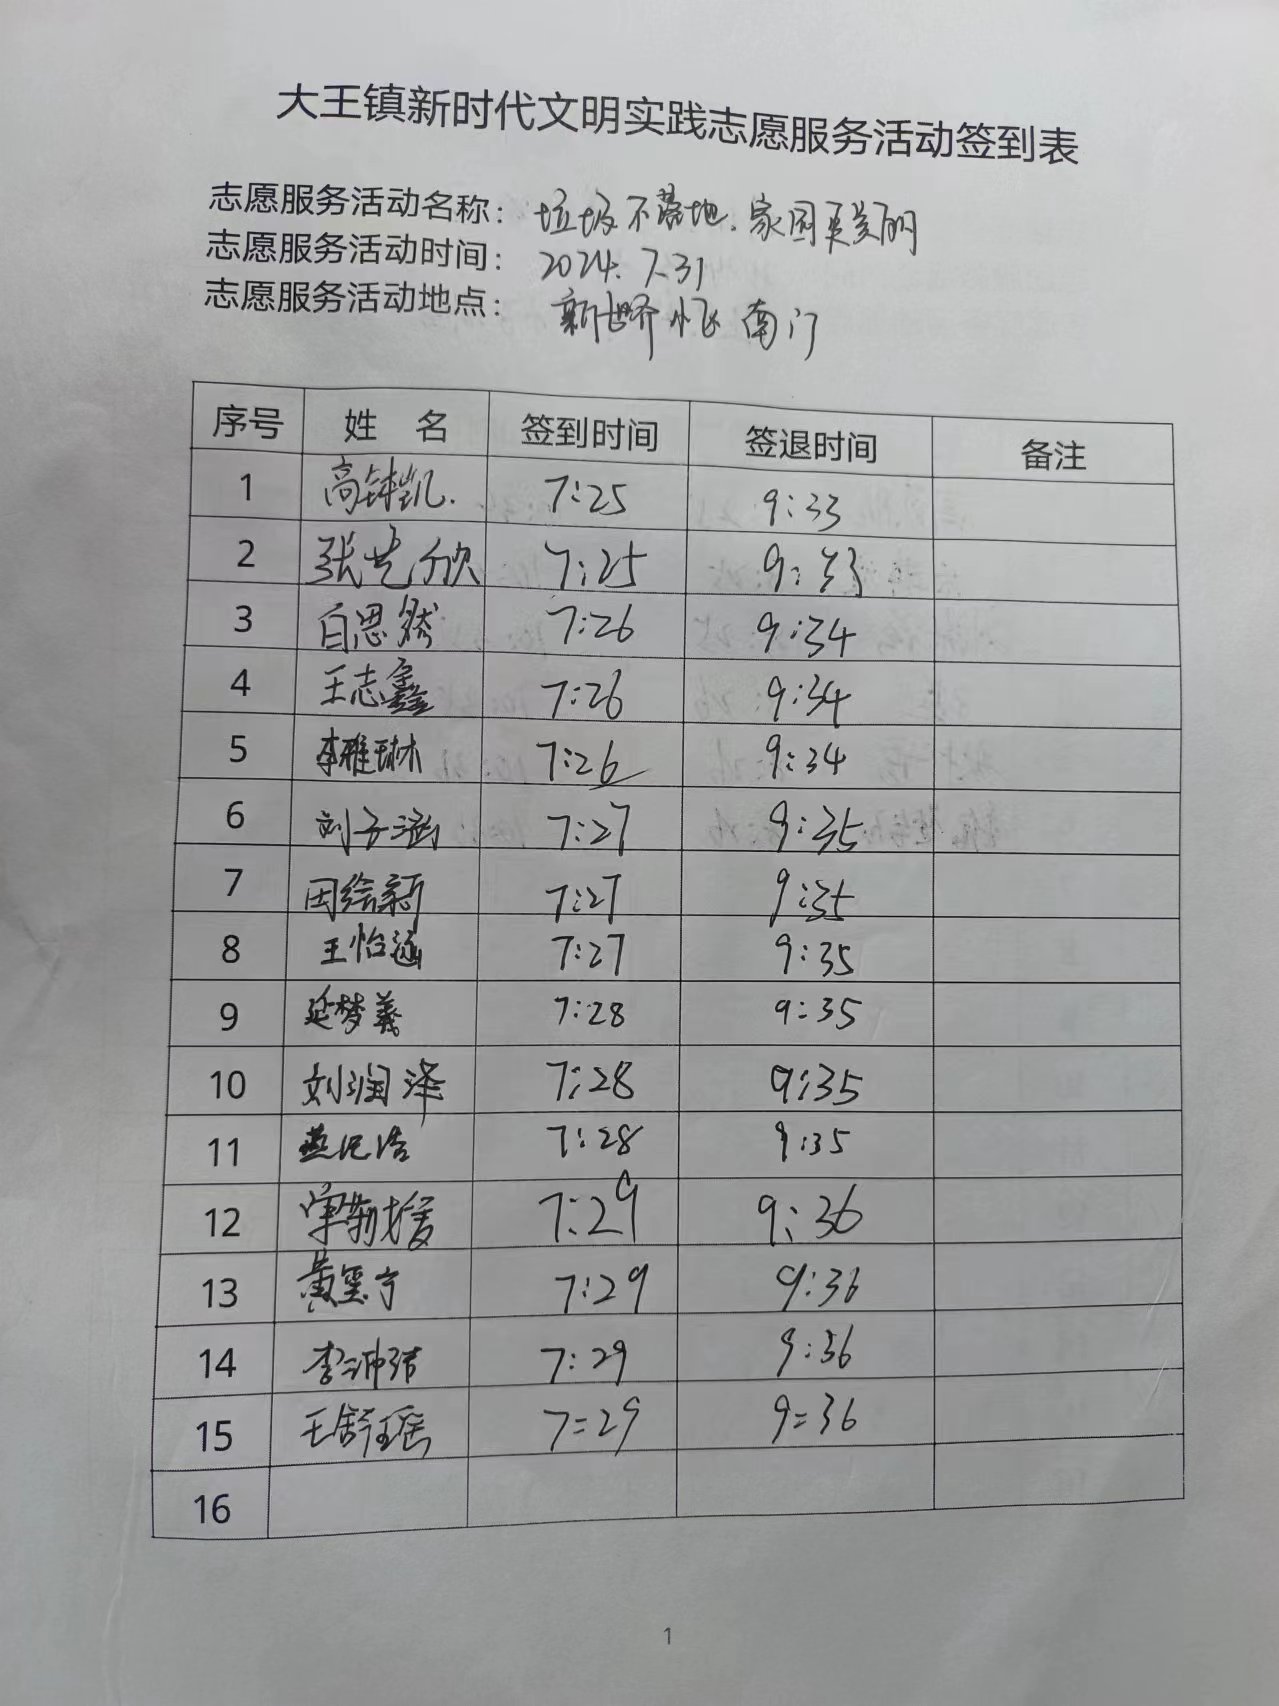 大王镇新时代文明实践志愿服务活动签到表
志愿服务活动名称：垃圾不落地，家园更美丽
志愿服务活动时间：2024.7.31
志愿服务活动地点：新世齐小区南门
序号 姓 名 签到时间 签退时间 备注
1 高钟凯. 7:25 9:33
2 张艺欣 7:25 9:33
3 白思然 7:26 9:34
4 王志鑫 7:26 9:34
5 李雅琳 7:26 9:34
6 刘子涵 7:27 9:35
7 田绘新 7:27 9:35
8 王怡涵 7:27 9:35
9 延梦義 7:28 9:35
10 刘润泽 7:28 9:35
11 7:28 9:35
12 7:29 9:36
13 7:29 9:36
14 李沛 7:29 9:36
15 王舒瑶 7:29 9:36
16
1